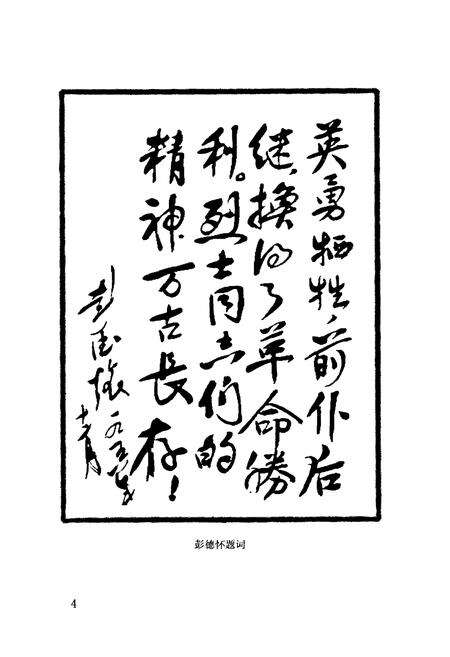 英勇牺牲，前仆后
继，换得了革命勝
利。烈士同志们的
精神万古長存！
彭德怀一九五八年
十一月
彭德怀题词
4